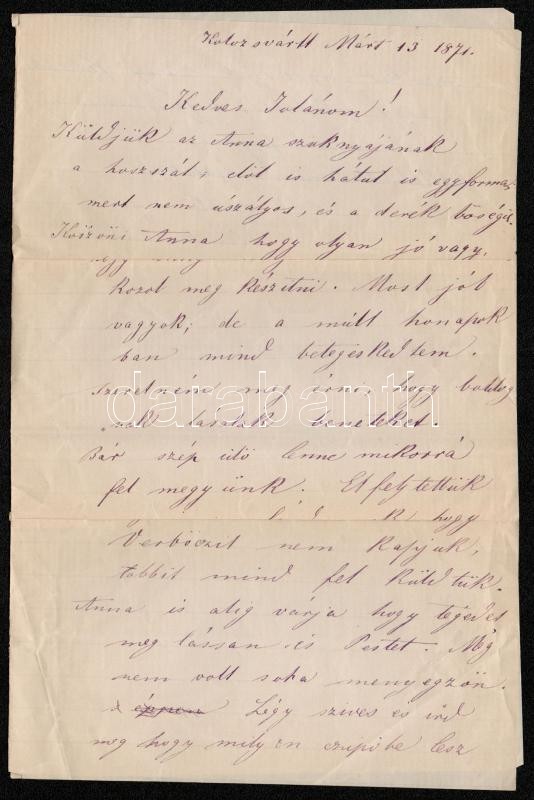 Kolozsvártt Márt 13 1871.
Kedves Jolánom!
Küldjük az Anna szoknyájának
a hoszszát, elöl is hátul is egyforma,
mert nem úszályos, és a derék bőségit.
Köszöni Anna hogy olyan jó vagy,
kozol meg készitni. Most jól
vagyok; de a múlt honapok
ban mind betegeskedtem.
szeretném meg érni, hogy boldog
nak lássalak beneteket.
Bár szép idő lenne mikorrá
fel megyünk. El felejtettük
hogy
Verbőczit nem kapjuk,
többit mind fel küldtük.
Anna is alig várja hogy tégedet
meg lásson és Pestet. Még
nem volt soha menyegzőn.
éppen Légy szives és ird
meg hogy milyen czipőbe lesz
darabanth